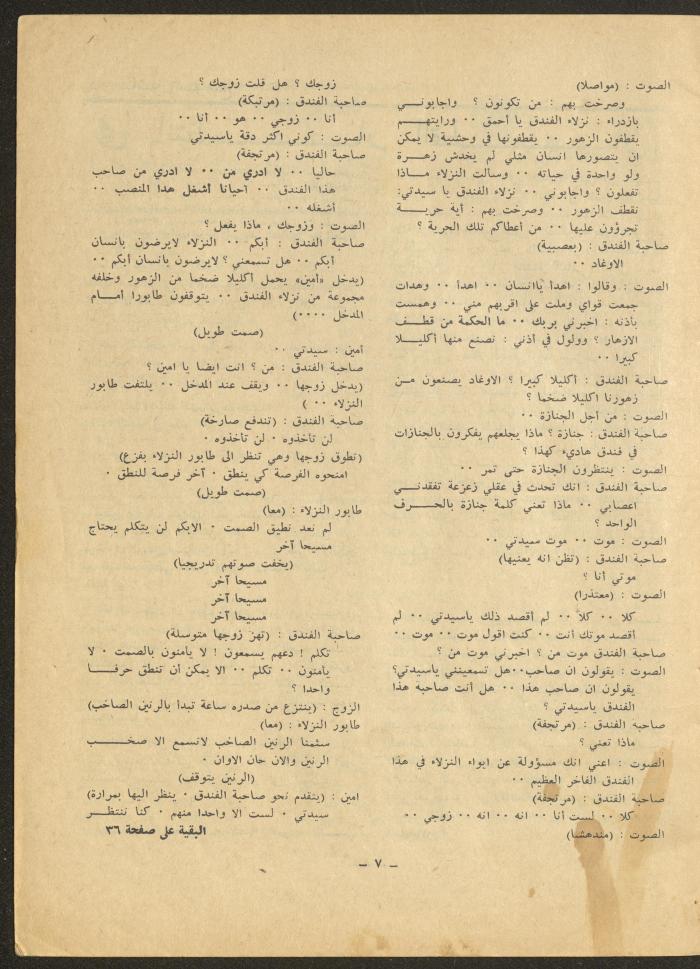 الصوت : (مواصلا)
وصرخت بهم : من تكونون ؟ واجابونــي
بازدراء : نزلاء الفندق يا أحمق ٠٠ ورايتهــم
يقطفون الزهور ٠٠ يقطفونها في وحشية لا يمكن
ان يتصورها انسان مثلي لم يخدش زهــرة
ولو واحدة في حياته ٠٠ وسألت النزلاء مــاذا
تفعلون ؟ واجابوني ٠٠ نزلاء الفندق يا سيدتي:
نقطف الزهور ٠٠ وصرخت بهم : أية حريــة
تجرؤون عليها ٠٠ من أعطاكم تلك الحرية ؟
صاحبة الفندق : (بعصبية)
الاوغاد ٠٠
الصوت : وقالوا : اهدأ ياانسان ٠٠ اهدأ ٠٠ وهدات
جمعت قواي وملت على اقربهم مني ٠٠ وهمست
بأذنه : اخبرني بربك ٠٠ ما الحكمة من قطــف
الازهار ؟ وولول في أذني : نصنع منها أكليــلا
كبيرا ٠٠
صاحبة الفندق : أكليلا كبيرا ؟ الاوغاد يصنعون مــن
زهورنا اكليلا ضخما ؟
الصوت : من أجل الجنازة ٠٠
صاحبة الفندق : جنازة ؟ ماذا يجعلهم يفكرون بالجنازات
في فندق هاديء كهذا ؟
الصوت : ينتظرون الجنازة حتى تمر ٠٠
صاحبة الفندق : انك تحدث في عقلي زعزعة تفقدنــي
اعصابي ٠٠ ماذا تعني كلمة جنازة بالحــرف
الواحد ؟
الصوت : موت ٠٠ موت سيدتي ٠٠
صاحبة الفندق : (تظن انه يعنيها)
موتي أنا ؟
الصوت : (معتذرا)
كلا ٠٠ كلا ٠٠ لم أقصد ذلك ياسيدتي ٠٠ لم
أقصد موتك أنت ٠٠ كنت اقول موت ٠٠ موت ٠٠
صاحبة الفندق موت من ؟ اخبرني موت من ؟
الصوت : يقولون ان صاحب٠٠هل تسمعينني ياسيدتي؟
يقولون ان صاحب هذا ٠٠ هل أنت صاحبة هذا
الفندق ياسيدتي ؟
صاحبة الفندق : (مرتجفة)
ماذا تعني ؟
الصوت : اعني انك مسؤولة عن ايواء النزلاء في هذا
الفندق الفاخر العظيم ٠٠
صاحبة الفندق : (مرتجفة)
كلا ٠٠ لست أنا ٠٠ انه ٠٠ انه ٠٠ زوجي ٠٠
الصوت : (مندهشا)
زوجك ؟ هل قلت زوجك ؟
صاحبة الفندق : (مرتبكة)
أنا ٠٠ زوجي ٠٠ هو ٠٠ أنا ٠٠
الصوت : كوني اكثر دقة ياسيدتي
صاحبة الفندق : (مرتجفة)
حاليا ٠٠ لا ادري من ٠٠ لا ادري من صاحب
هذا الفندق ٠٠ أحيانا أشغل هذا المنصب ٠٠
أشغله ٠٠
الصوت : وزوجك ، ماذا يفعل ؟
صاحبة الفندق : أبكم ٠٠ النزلاء لايرضون بانسان
أبكم ٠٠ هل تسمعني ؟ لايرضون بانسان أبكم ٠٠
(يدخل «أمين» يحمل أكليلا ضخما من الزهور وخلفه
مجموعة من نزلاء الفندق ٠٠ يتوقفون طابورا أمــام
المدخل ٠٠٠٠)
(صمت طويل)
أمين : سيدتي ٠٠
صاحبة الفندق : من ؟ انت ايضا يا امين ؟
(يدخل زوجها ٠٠ ويقف عند المدخل ٠٠ يلتفت طابور
النزلاء ٠٠ )
صاحبة الفندق : (تندفع صارخة)
لن تأخذوه ٠ لن تأخذوه ٠
(تطوق زوجها وهي تنظر الى طابور النزلاء بفزع)
امنحوه الفرصة كي ينطق ٠ آخر فرصة للنطق ٠
(صمت طويل)
طابور النزلاء : (معا)
لم نعد نطيق الصمت ٠ الابكم لن يتكلم يحتاج
مسيحا آخر
(يخفت صوتهم تدريجيا)
مسيحا آخر
مسيحا آخر
مسيحا آخر
صاحبة الفندق : (تهز زوجها متوسلة)
تكلم ! دعهم يسمعون ! لا يأمنون بالصمت ٠ لا
يأمنون ٠٠ تكلم ٠٠ الا يمكن أن تنطق حرفــا
واحدا ؟
الزوج : (ينتزع من صدره ساعة تبدأ بالرنين الصاخب)
طابور النزلاء : (معا)
سئمنا الرنين الصاخب لانسمع الا صخــب
الرنين والان حان الاوان ٠
(الرنين يتوقف)
امين : (يتقدم نحو صاحبة الفندق ٠ ينظر اليها بمرارة)
سيدتي ٠ لست الا واحدا منهم ٠ كنا ننتظــر
البقية على صفحة ٣٦
– ٧ –